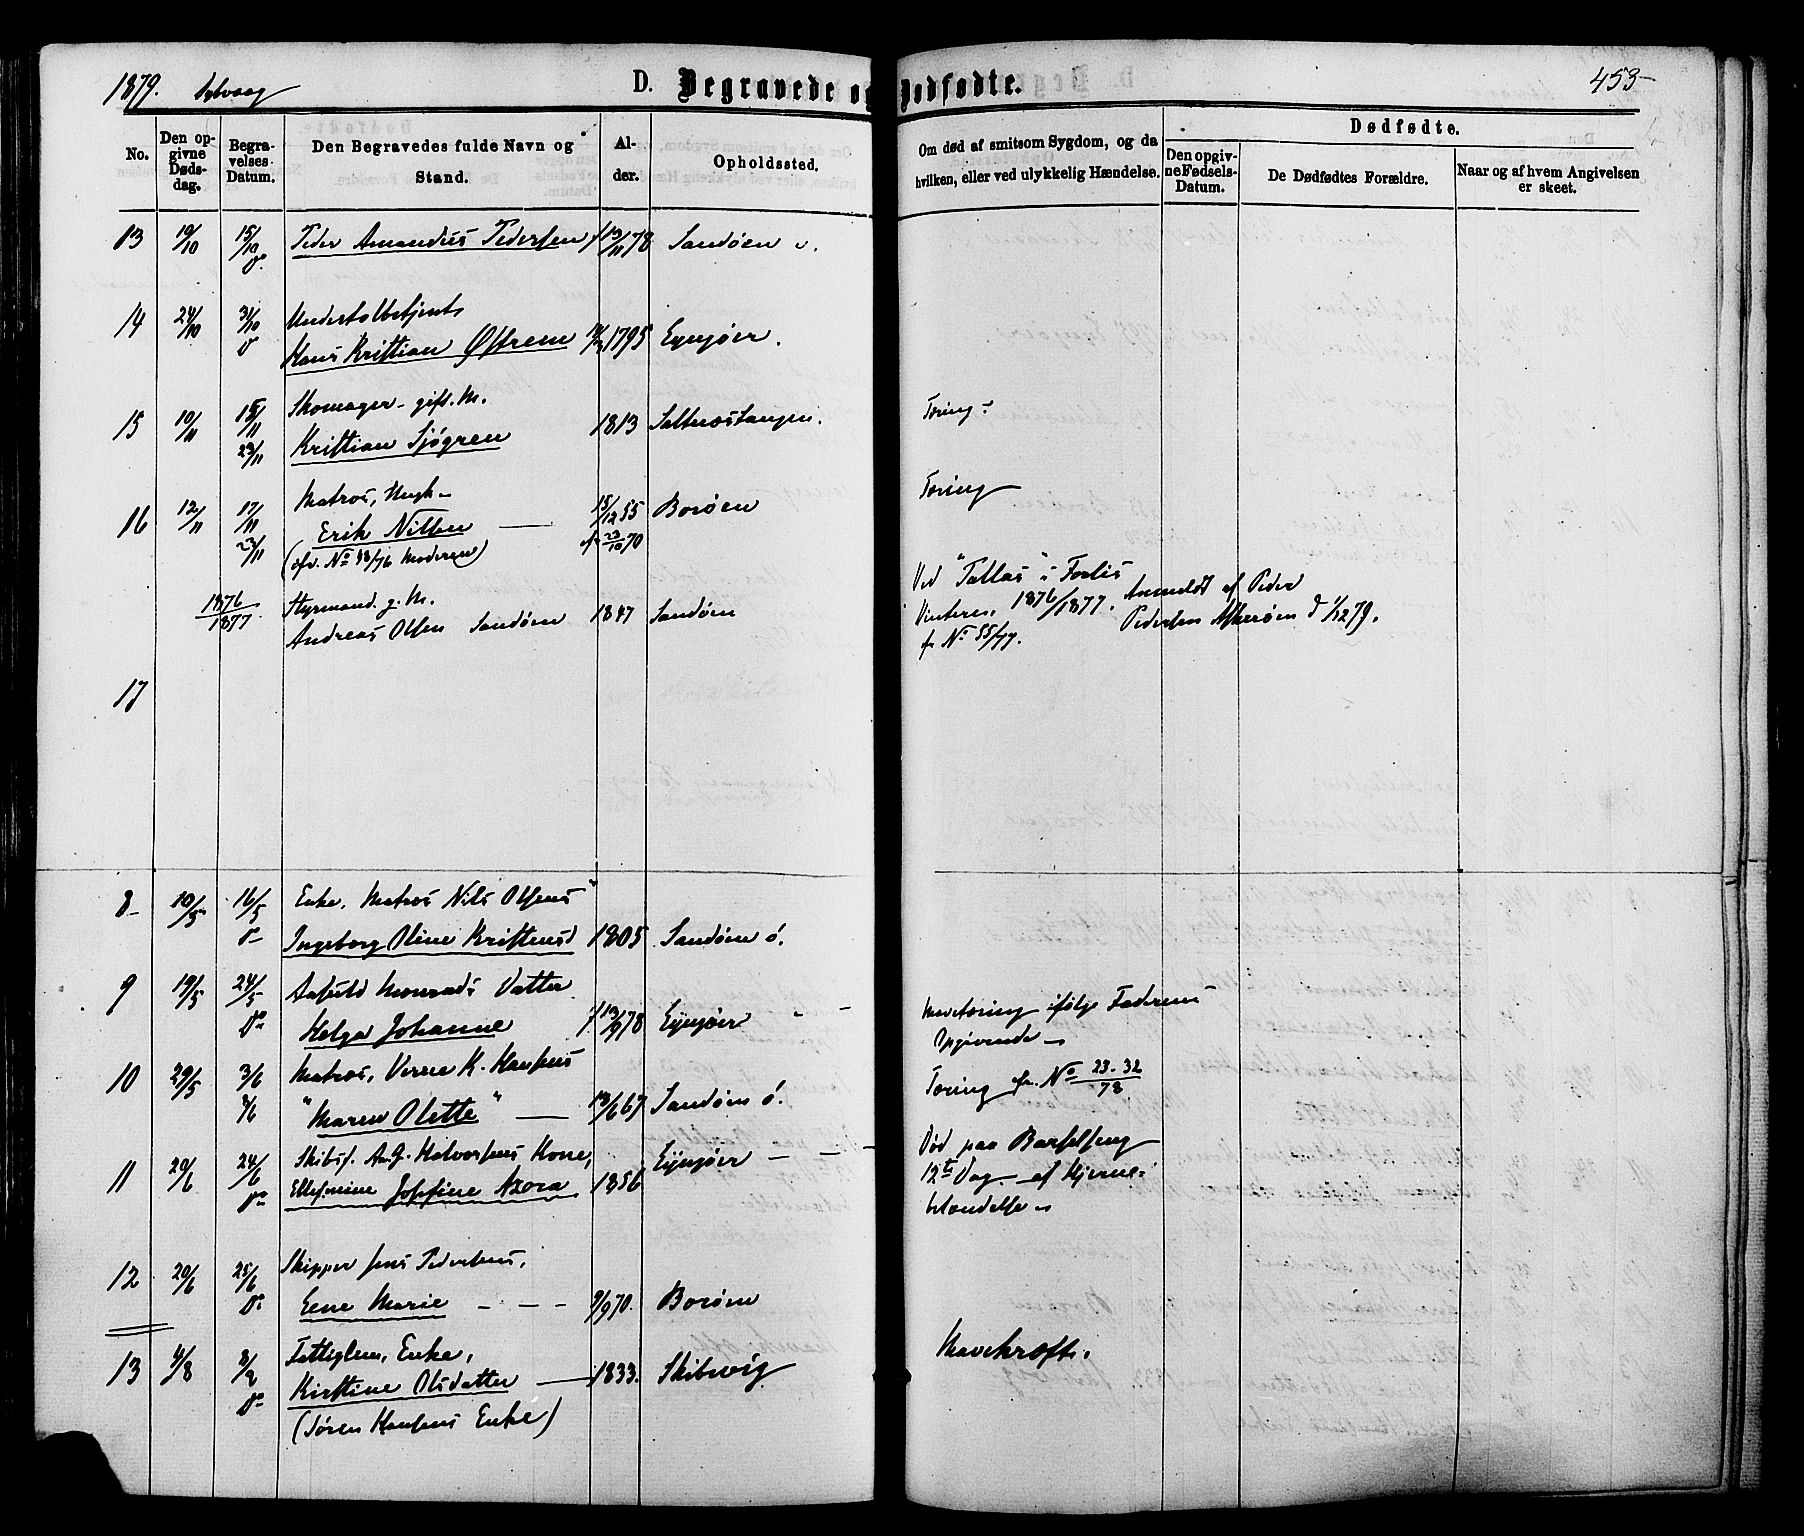 1879.
D. Begravede og Dødfødte.
453
No.
Den opgivne Dødsdag.
Begravelses-Datum.
Den Begravedes fulde Navn og Stand.
Alder.
Opholdssted.
Om død af smitsom Sygdom, og da hvilken, eller ved ulykkelig Hændelse.
Dødfødte.
Den opgivne Fødsels-Datum.
De Dødfødtes Forældre.
Naar og af hvem Angivelsen er skeet.
13 19/10 15/10 Peder Amandius Pedersen f 13/11 78 Sandøen v.
14 24/10 31/10 Undertolbetjent
Hans Kristian Østrem 1795 Lyngøer.
15 10/11 15/11 Skomager gift. M. Tæring
23/11 Kristian Sjøgren 1813
16 12/11 17/11 Matros, Ungk. 15/12 55 Borøen Tæring
23/11 Erik Nilsen
(cfr. No 98/76 Moderen) cfr 23/10 70
1876/1877 Styrmand. g. M. 1847 Sandøen
Andreas Olsen Sandøen
Ved "Tallas" s Forlis
Vinteren 1876/1877. Anmeldt af Peder
cfr No 55/77. Pedersen Askerøen d 1/12 79.
17
8 10/5 16/5 Enke. Matros Nils Olsens
Ingeborg Oline Kristensd 1805 Sandøen ø.
9 19/5 24/5 Monrads Datter
Helga Johanne f. 13/9 78 Lyngøer
Mavetæring ifølge Faderens
Opgivende
10 29/5 3/6 Matros, Verne K. Hansens
3/6 "Maren Olette" 13/6 67 Sandøen ø.
Tæring cfr. No 23-32/78
11 20/6 24/6 Skibsf. An. G. Halvorsens Kone, Lyngøer
Josefine Azora 1856
Død paa Barselseng
12te Dag af Hjerne-
betændelse
12 20/6 25/6 Skipper Jens Pedersens,
Lene Marie 9/9 70. Borøen
13 4/8 8/2 Fattiglem, Enke, Mavekræft.
Kirstine Olsdatter 1833. Skibsvig
(Søren Hansens Enke)